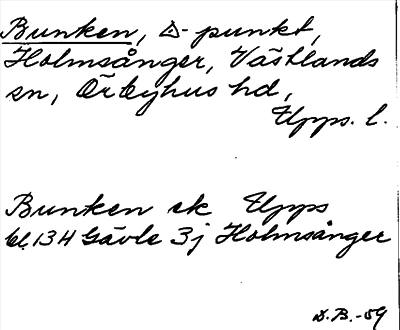 Bunken, △- punkt,
Holmsånger, Västlands
sn, Örbyhus hd,
Upps. l.
Bunken ek Upps
bl. 134 Gävle 3j Holmsånger
D.B.-59